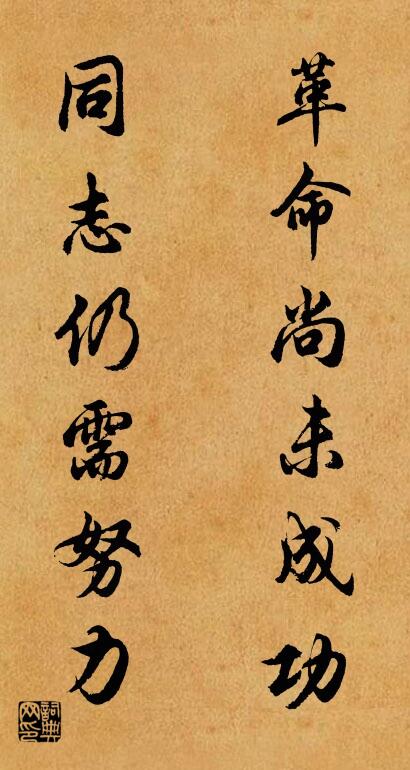 革命尚未成功
同志仍需努力
詞典網印